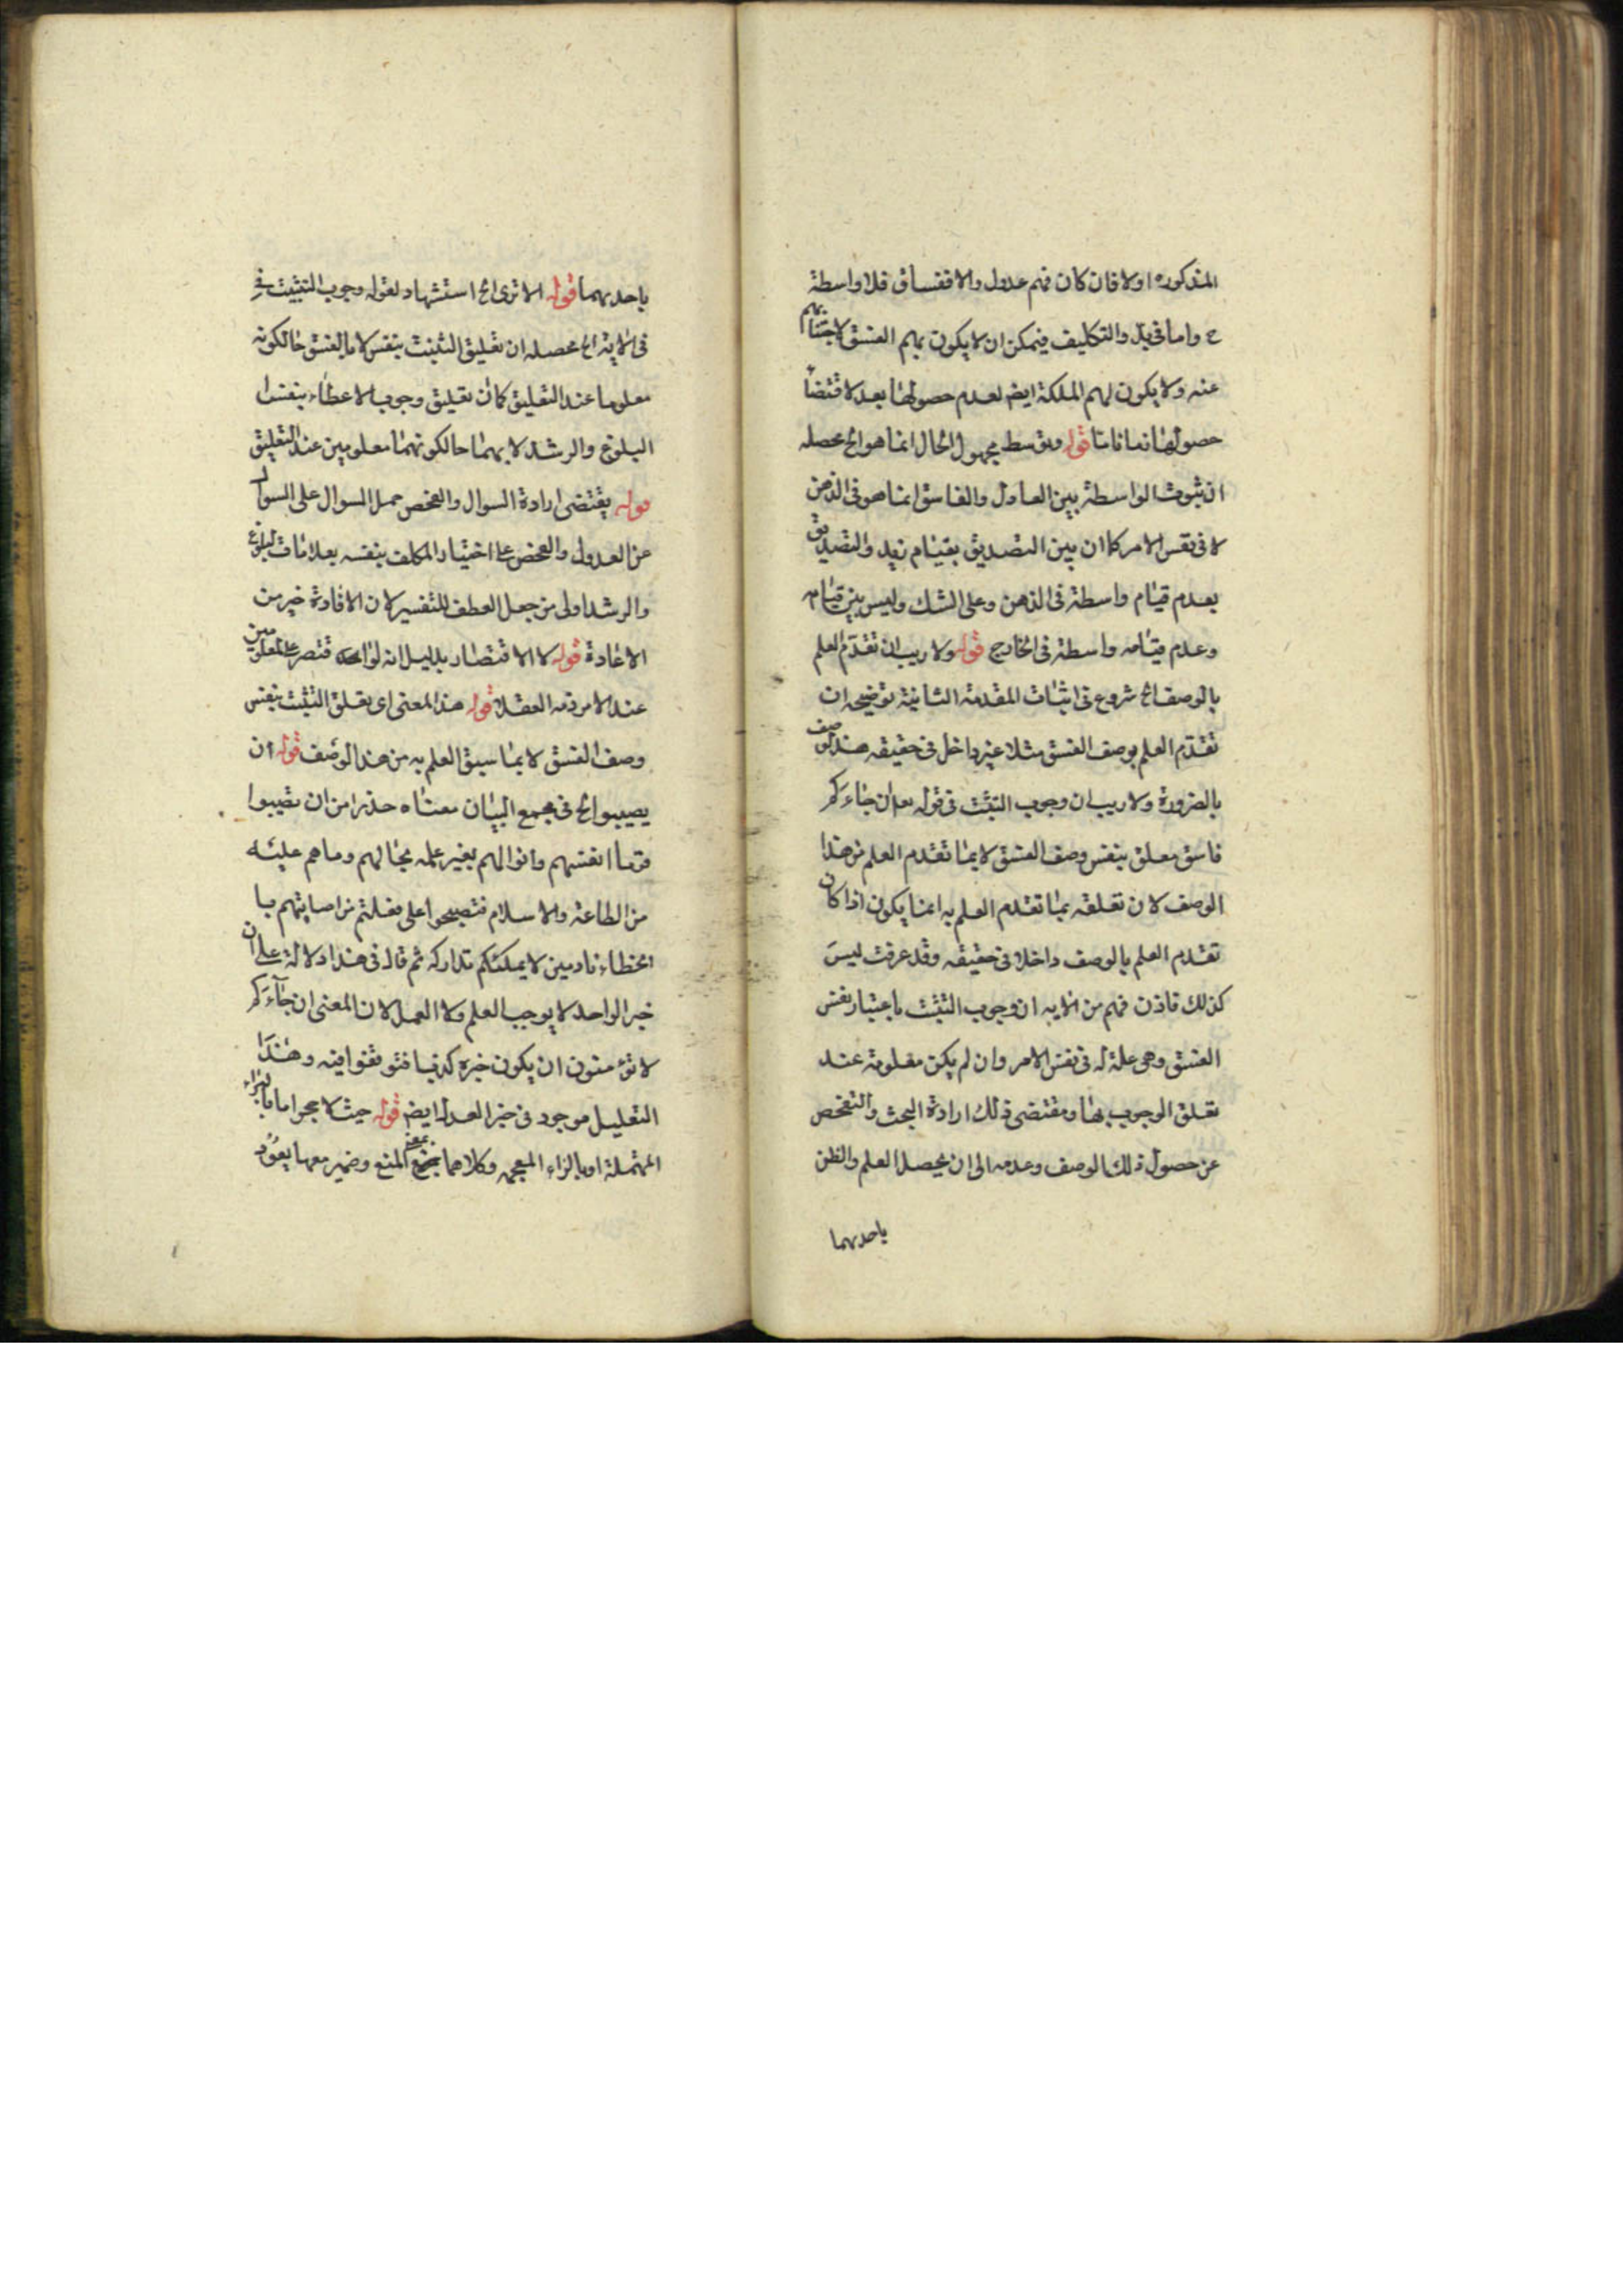 المذكوره اولا فان كان فهم عدول والا ففساق فلا واسطة
ح واما في بدو التكليف فيمكن ان لا يكون بهم الفسق لاجتنابهم
عنه ولا يكون لهم الملكة ايض لعدم حصولها بعد لاقتضاء
حصولها زمانا ما قوله وتوسط مجهول الحال انما هو الخ محصله
ان ثبوت الواسطة بين العادل والفاسق انما هو في الذهن
لا في نفس الامر كما ان بين التصديق بقيام زيد والتصديق
بعدم قيام واسطة في الذهن وعلى الشك وليس بين قيامه
وعدم قيامه واسطة في الخارج قوله ولا ريب ان تقدم العلم
بالوصف الخ شروع في اثبات المقدمة الثانية توضيحه ان
تقدم العلم بوصف الفسق مثلا غير داخل في حقيقه هذا الوصف
بالضرورة ولا ريب ان وجوب التثبت في قوله تعا ان جاءكم
فاسق معلق بنفس وصف الفسق لا بما تقدم العلم من هذا
الوصف لان تعلقه بما تقدم العلم به انما يكون اذا كان
تقدم العلم بالوصف داخلا في حقيقه وقد عرفت ليس
كذلك فاذن فهم من الايه ان وجوب التثبت باعتبار نفس
الفسق وهى علة له في نفس الامر وان لم يكن معلومة عند
تعلق الوجوب بها ومقتضى ذلك ارادة البحث والتفحص
عن حصول ذلك الوصف وعدمه الى ان يحصل العلم والظن
باحدهما
باحدهما قوله الا ترى الخ استشهاد لقوله وجوب التثبت في
في الاية الخ محصله ان تعليق التثبت بنفس لا ما الفسق حالكونه
معلوما عند التعليق كما ان تعليق وجوب الاعطاء بنفس
البلوغ والرشد لا بهما حالكونهما معلومين عند التعليق
قوله يقتضى ارادة السوال والفحص حمل السوال على السوال
عن العدول والفحص على اختيار المكلف بنفسه بعلامات البلوغ
والرشد اولى من جعل العطف للتفسير لان الافادة خير من
الاعادة قوله لا الاقتصار بدليل انه لو اقتصر على المعلومين
عند الامر ذمه العقلاء قوله هذا المعنى اى تعلق التثبت بنفس
وصف الفسق لا بما سبق العلم به من هذا الوصف قوله ان
يصيبوا الخ في مجمع البيان معناه حذرا من ان تصيبوا
قوما انفسهم واموالهم بغير علم بحالهم وما هم عليه
من الطاعة والاسلام فتصبحوا على فعلتم من اصابتهم با
الخطاء نادمين لا يمكنكم تداركه ثم قال في هذا دلالة على ان
خبر الواحد لا يوجب العلم ولا العمل لان المعنى ان جاءكم
لا تؤمنون ان يكون خبره كذبا فتوقفوا فيه وهذا
التعليل موجود في خبر العدل ايض قوله حيث لا حجر اما بالراء
المهملة او بالزاء المعجمه وكلاهما بمعنى المنع وضمير معها يعود